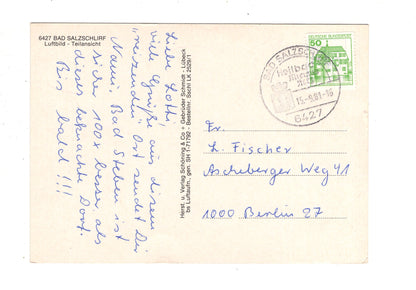 6427 BAD SALZSCHLIRF
Luftbild - Teilansicht
Liebe Lotti!
viele Grüße aus diesem
"reizenden" Ort sendet Dir
Nanni, Bad Steben ist
sicher 100x besser, als
dieses beknackte Dorf.
Bis bald!!!
Herst. u. Verlag Schöning & Co - Gebrüder Schmidt - Lübeck
Luftaufn.
Bestellnr. Sochl LK 2529/1
50
DEUTSCHE BUNDESPOST
BAD SALZSCHLIRF
15.-9.81-16
6427
Fr.
L. Fischer
Ascheberger Weg 41
1000 Berlin 27